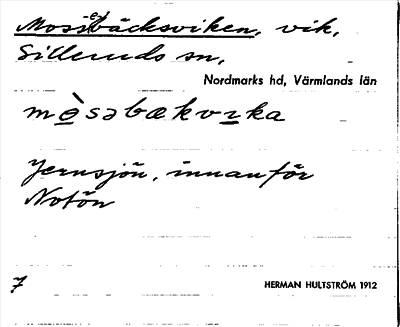 Moss(e)bäcksviken, vik,
Silleruds sn,
Nordmarks hd, Värmlands län
mòsəbækvɪka
Jernsjön, innanför
Notön
7 HERMAN HULTSTRÖM 1912